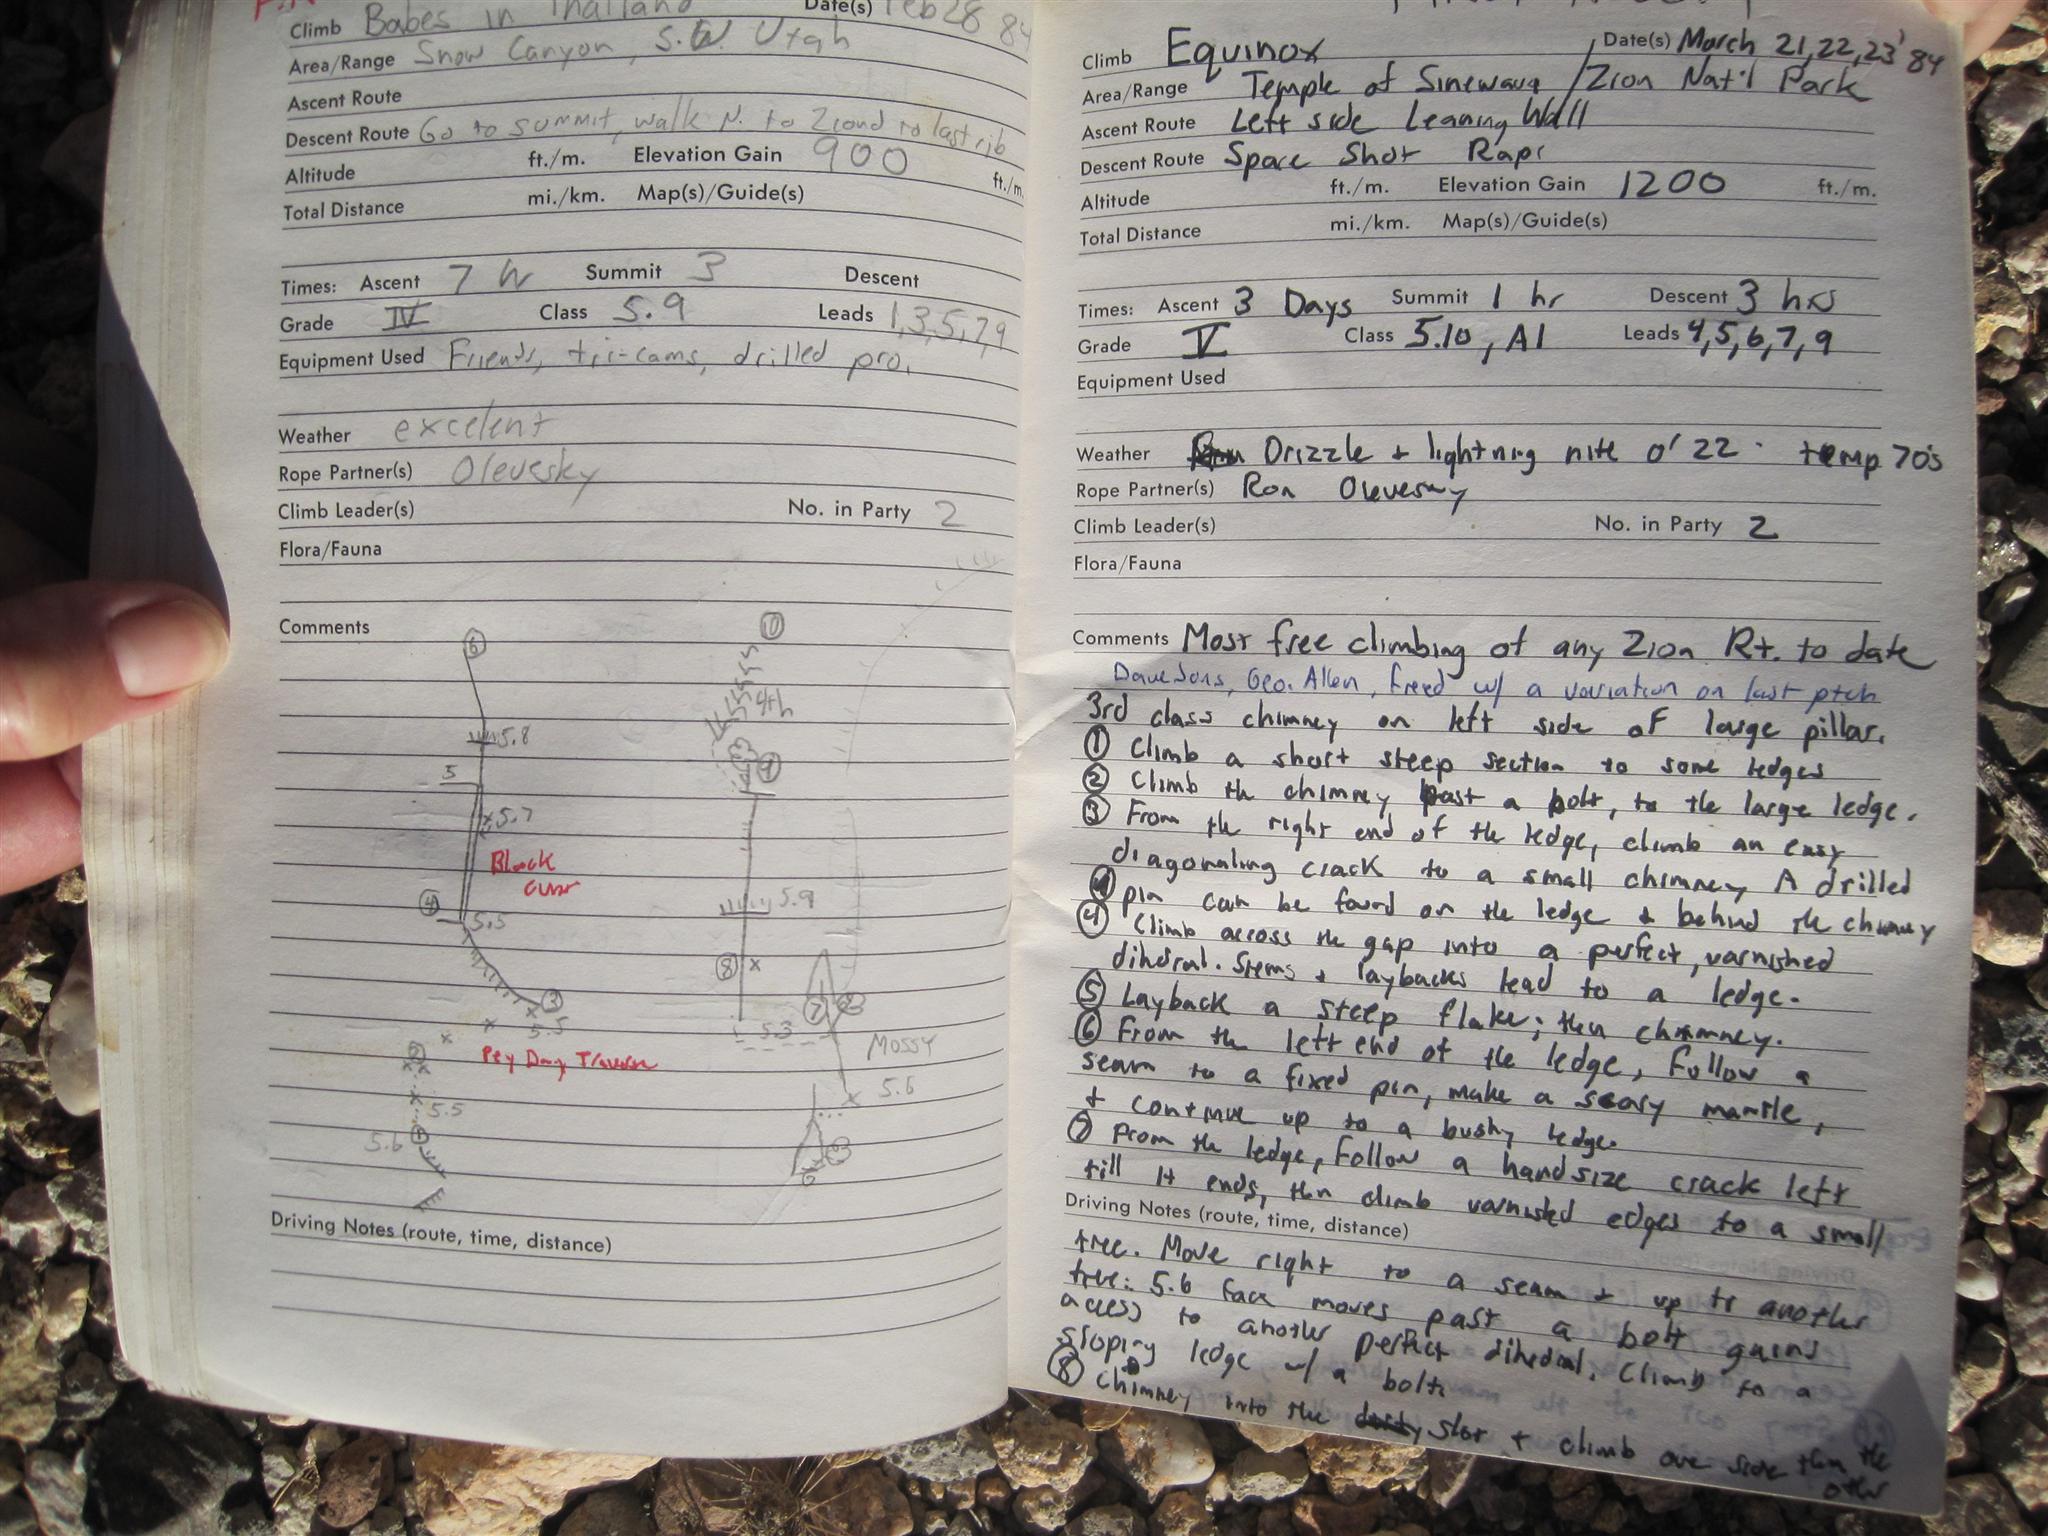 Climb Babes in Thailand Date(s) Feb 28 84
Area/Range Snow Canyon, S.W. Utah
Ascent Route
Descent Route Go to summit, walk N. to 2nd to last rib
Altitude ft./m. Elevation Gain 900 ft./m.
Total Distance mi./km. Map(s)/Guide(s)
Times: Ascent 7 h Summit 3 Descent
Grade IV Class 5.9 Leads 1,3,5,7,9
Equipment Used Friends, tri-cams, drilled pro.
Weather excelent
Rope Partner(s) Olevesky
Climb Leader(s) No. in Party 2
Flora/Fauna
Comments
6
10
4th
5.8
5
9
5.7
Black
4
5.5
5.9
8
3
5.5
7
5.3
Pey Day Traverse
Mossy
5.5
5.6
5.6
Driving Notes (route, time, distance)
Climb Equinox Date(s) March 21,22,23' 84
Area/Range Temple of Sinewava / Zion Nat'l Park
Ascent Route Left side Leaning Wall
Descent Route Space Shot Raps
Altitude ft./m. Elevation Gain 1200 ft./m.
Total Distance mi./km. Map(s)/Guide(s)
Times: Ascent 3 Days Summit 1 hr Descent 3 hrs
Grade V Class 5.10, A1 Leads 4,5,6,7,9
Equipment Used
Weather Drizzle + lightning nite o' 22 temp 70's
Rope Partner(s) Ron Olevesky
Climb Leader(s) No. in Party 2
Flora/Fauna
Comments Most free climbing of any Zion Rt. to date
Dave Jons, Geo. Allen, freed w/ a variation on last ptch
3rd class chimney on left side of large pillar.
① Climb a short steep section to some ledges
② Climb the chimney past a bolt, to the large ledge.
③ From the right end of the ledge, climb an easy
diagonaling crack to a small chimney A drilled
pin can be found on the ledge + behind the chimney
④ Climb across the gap into a perfect, varnished
dihedral. Stems + laybacks lead to a ledge.
⑤ Layback a steep flake; then chimney.
⑥ From the left end of the ledge, follow a
seam to a fixed pin, make a scary mantle,
+ continue up to a bushy ledge.
⑦ From the ledge, follow a handsize crack left
till it ends, then climb varnished edges to a small
Driving Notes (route, time, distance)
tree. Move right to a seam + up to another
tree: 5.6 face moves past a bolt gains
access to another perfect dihedral. Climb to a
sloping ledge w/ a bolt.
⑧ Chimney into the slot + climb one side then the
other